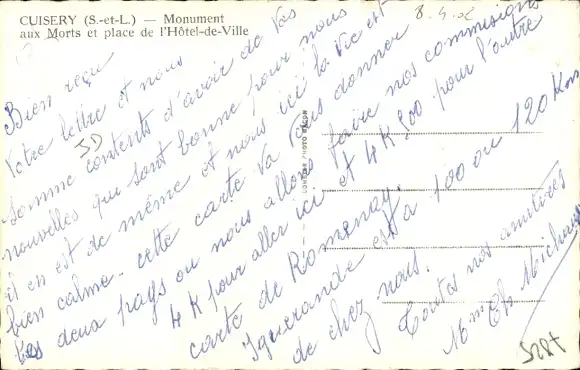 CUISERY (S.-et-L.) — Monument
aux Morts et place de l'Hôtel-de-Ville
Bien reçu
votre lettre et nous
somme contents d'avoir de vos
nouvelles qui sont bonne pour nous
il en est de même et nous ici la vie est
bien calme. cette carte va vous donner
les deux pays ou nous allons faire nos commissions
4 K pour aller ici et 4 K 900 pour l'autre
carte de Romenay.
Iguerande est a 100 ou 120 Km
de chez nous.
Toutes nos amitiées
Mme Ch. Michaud
COMBIER PHOTO MACON
SD
5287